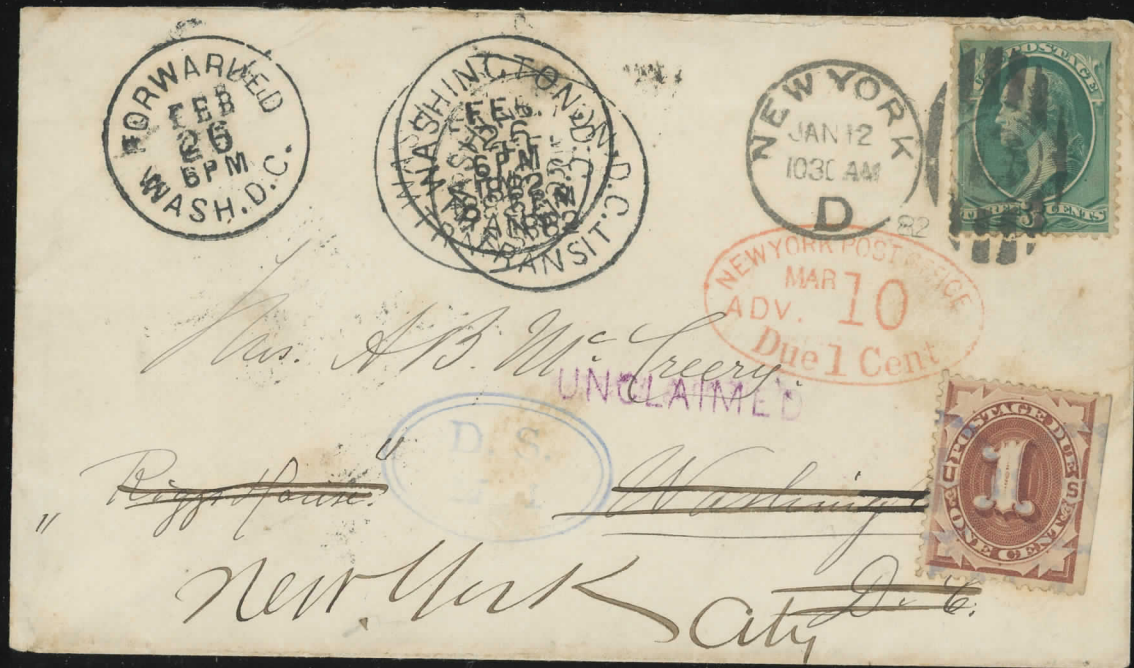 FORWARDED
FEB
26
6 PM
WASH.D.C.
WASHINGTON, D.C.
FEB
6 PM
TRANSIT
NEW YORK
JAN 12
1030 AM
D
82
POSTAGE
3
CENTS
NEW YORK POST OFFICE
MAR 10
ADV.
Due 1 Cent
A B. McCreery.
UNCLAIMED
D. S.
"Riggs House"
Washing
D. C.
New York City
POSTAGE DUE
1
ONE CENT